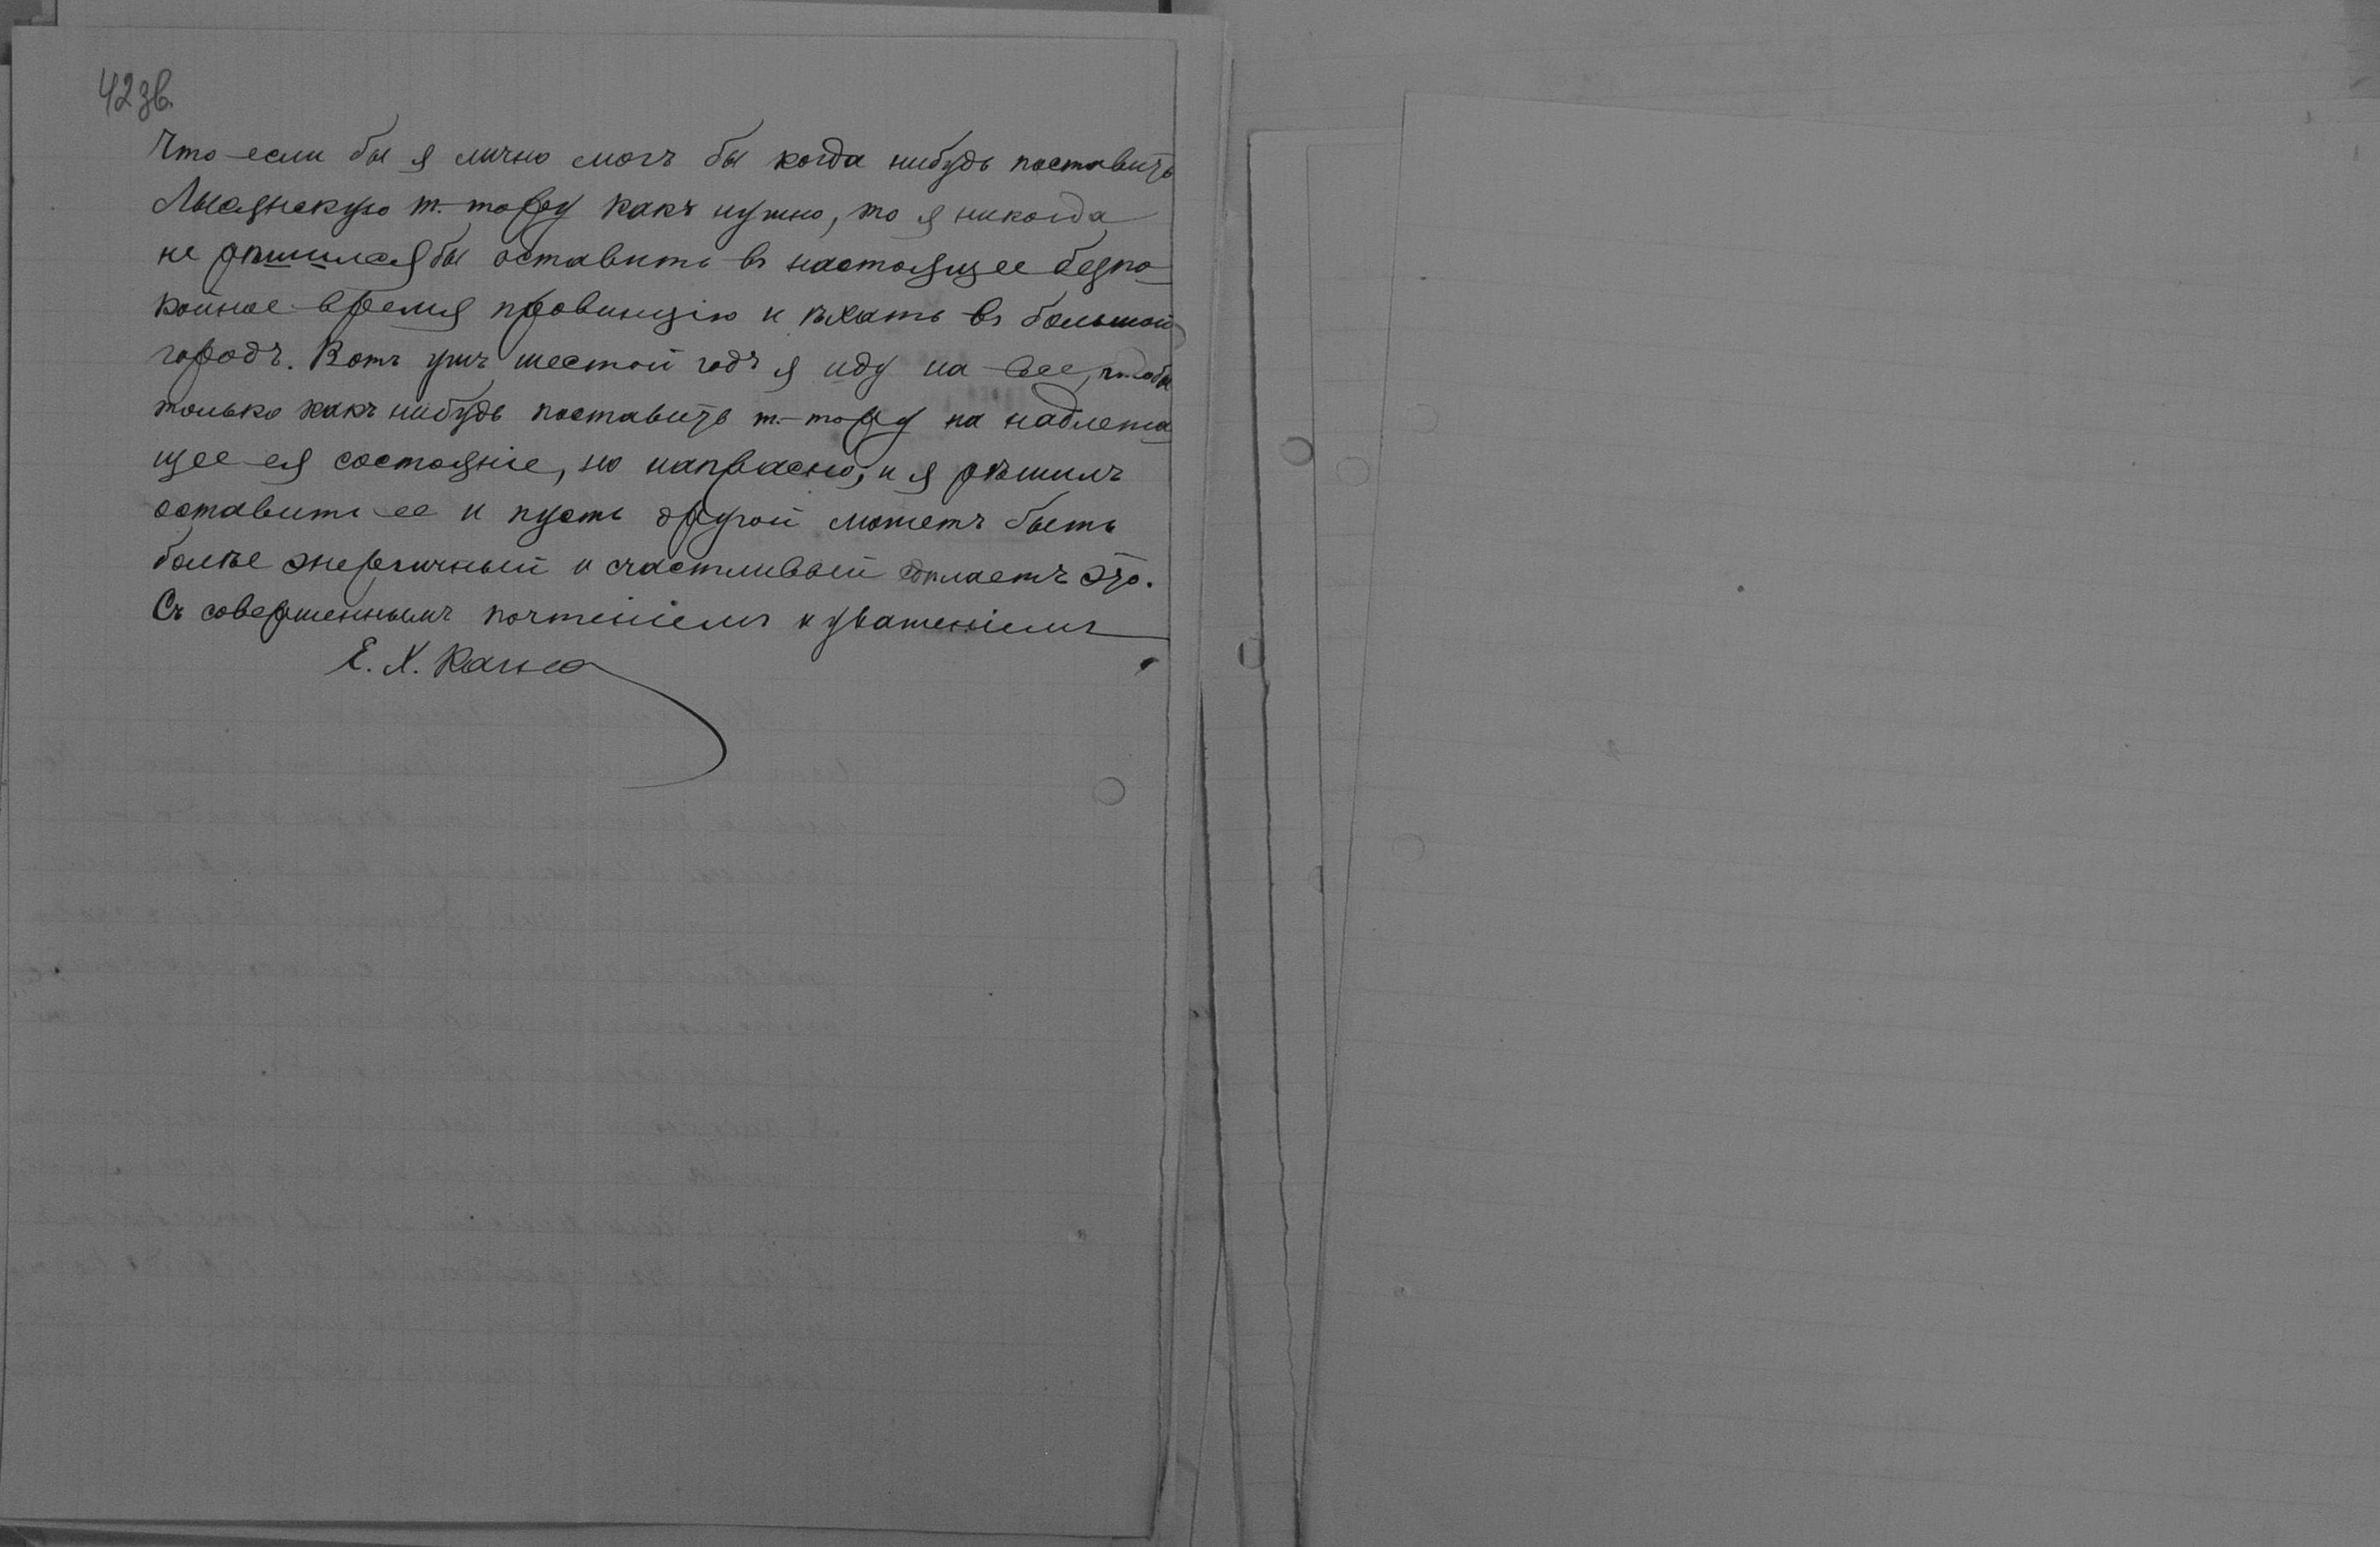 42 зв.
Что если бы я лично могъ бы когда нибудь поставить
Лысянскую т.-тору какъ нужно, то я никогда
не рѣшился бы оставить въ настоящее безпо
койное время провинцію и ѣхать въ большой
городъ. Вотъ ужъ шестой годъ я иду на все, чтобы
только какъ нибудь поставить т.-тору на надлежа
щее ея состояніе, но напрасно, и я рѣшилъ
оставить ее и пусть другой можетъ быть
болѣе энергичный и счастливый сдѣлаетъ это.
Съ совершеннымъ почтеніемъ и уваженіемъ
Е. Х.